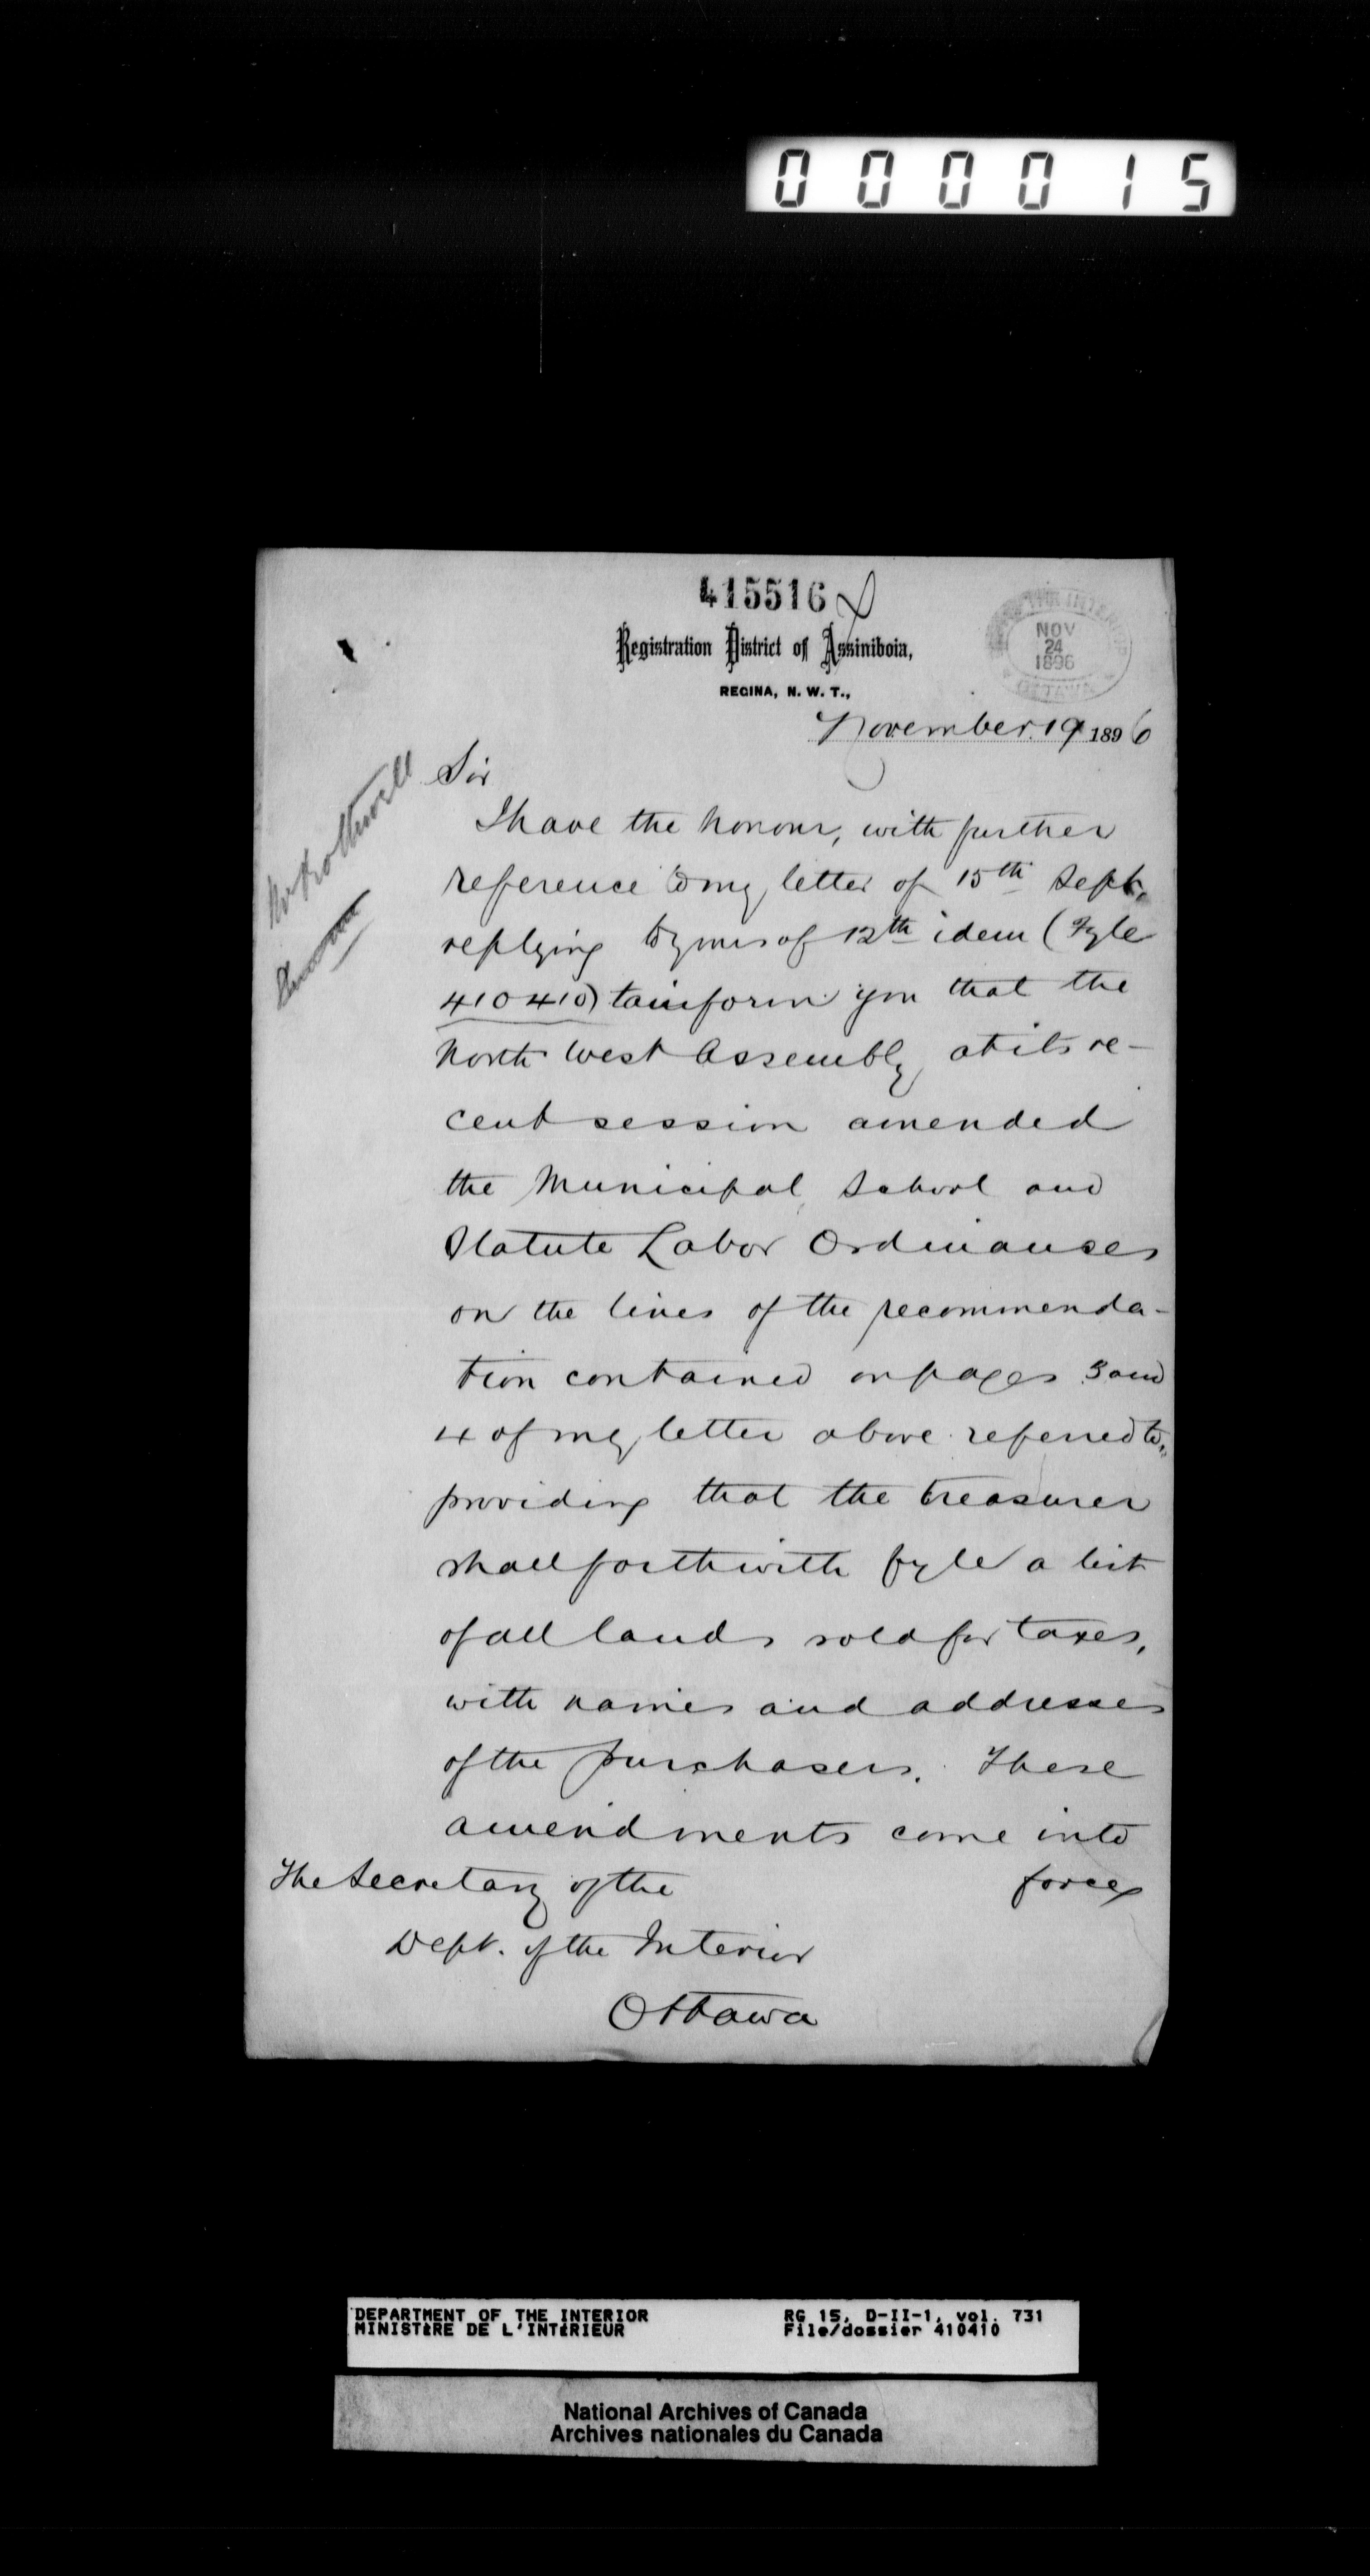 000015
415516
Registration District of Assiniboia,
REGINA, N. W. T.,
THE INTERIOR
NOV
24
1896
OTTAWA
November 19 1896
Mr Rothwell
Sir
I have the honour, with further
reference to my letter of 15th Sept.
replying to yours of 12th idem (Fyle
410410) to inform you that the
North West Assembly at its re-
cent session amended
the Municipal, School and
Statute Labor Ordinances
on the lines of the recommenda-
tion contained on pages 3 and
4 of my letter above referred to,
providing that the treasurer
shall forthwith fyle a list
of all lands sold for taxes,
with names and addresses
of the purchasers. These
amendments come into
force
The Secretary of the
Dept. of the Interior
Ottawa
DEPARTMENT OF THE INTERIOR
MINISTÈRE DE L'INTÉRIEUR
RG 15, D-II-1, vol. 731
File/dossier 410410
National Archives of Canada
Archives nationales du Canada